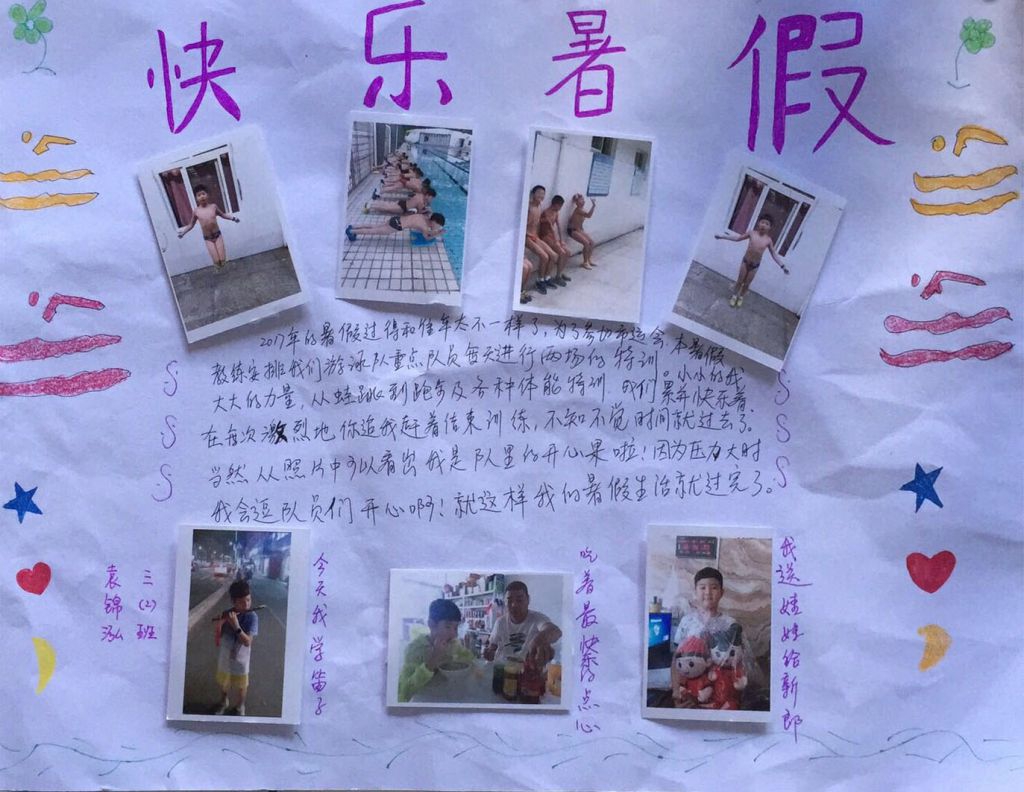 快乐暑假
2017年的暑假过得和往年大不一样了,为了参加市运会,本暑假
教练安排我们游泳队重点队员每天进行两场的特训。小小的我
大大的力量,从蛙跳到跑步及各种体能特训,我们累并快乐着,
在每次激烈地你追我赶着结束训练,不知不觉时间就过去了。
当然从照片中可以看出我是队里的开心果啦!因为压力大时
我会逗队员们开心啊!就这样我的暑假生活就过完了。
三(2)班
袁锦泓
今天我学笛子
吃着最快乐的点心
我送娃娃给新郎